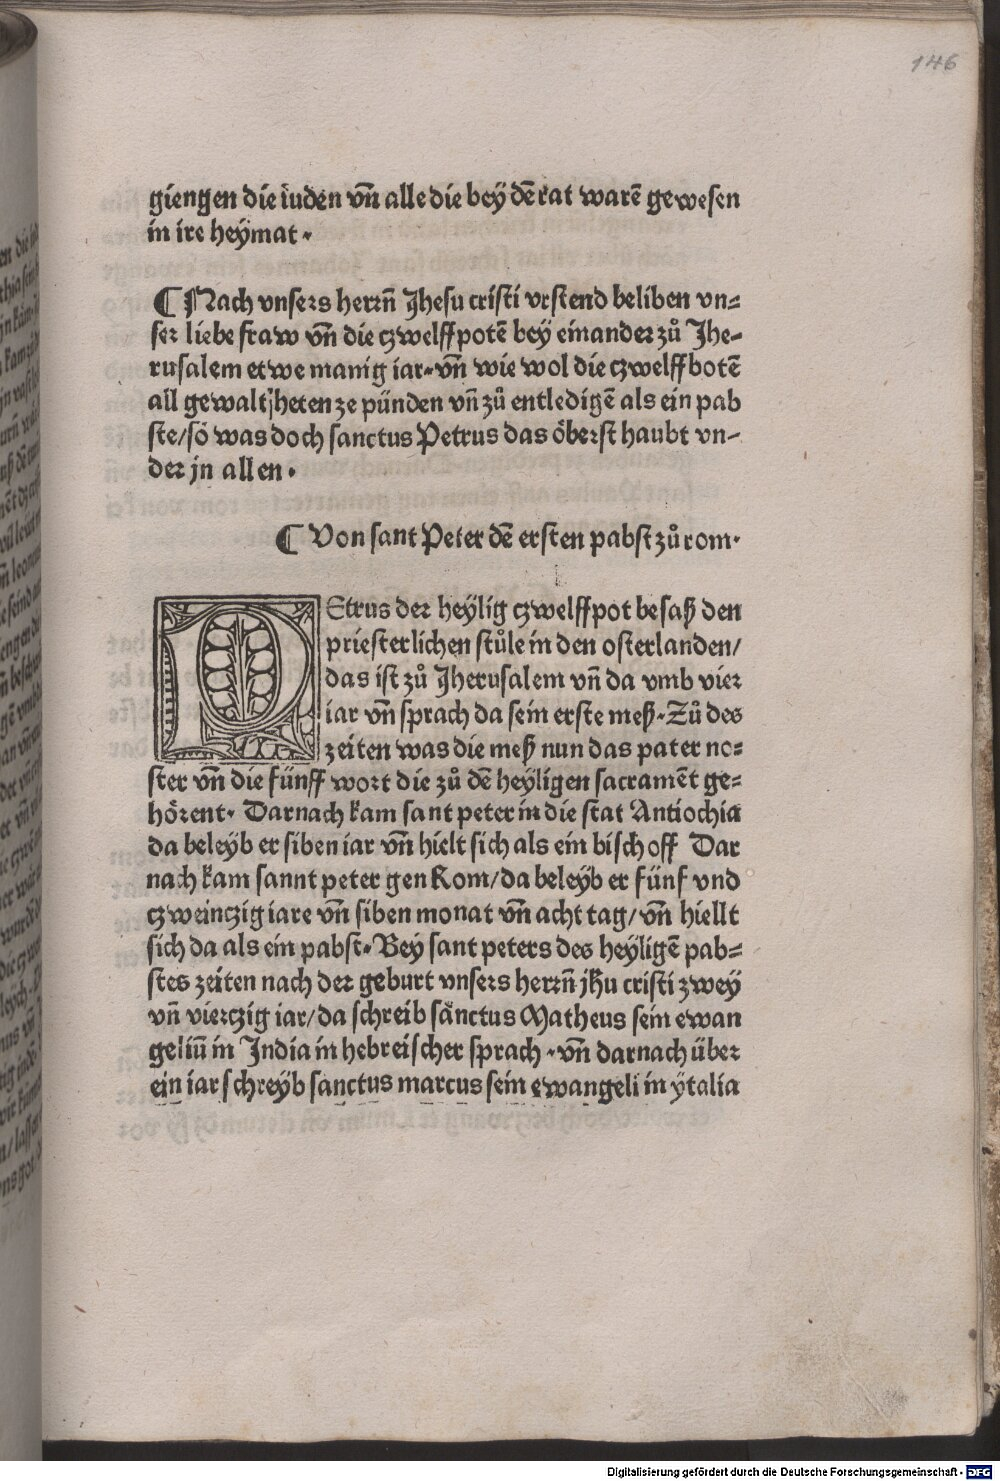 146
giengen die iuden vn̄ alle die bey dē rat warē gewesen
in ire heÿmat.
¶ Nach vnsers herrn̄ Jhesu cristi vrstend beliben vn=
ser liebe fraw vn̄ die czwelffpotē beÿ einander zů Jhe=
rusalem etwe manig iar. vn̄ wie wol die czwelffbotē
all gewalt heten ze pünden vn̄ zů entledigē als ein pab
ste/so was doch sanctus Petrus das öberst haubt vn=
der jn allen.
¶ Von sant Peter dē ersten pabst zů rom.
PEtrus der heÿlig czwelffpot besaß den
priesterlichen stůle in den osterlanden/
das ist zů Jherusalem vn̄ da vmb vier
iar vn̄ sprach da sein erste meß. Zů des
zeiten was die meß nun das pater no=
ster vn̄ die fünff wort die zů dē heÿligen sacramēt ge=
hörent. Darnach kam sant peter in die stat Antiochia
da beleÿb er siben iar vn̄ hielt sich als ein bischoff Dar
nach kam sannt peter gen Rom/da beleÿb er fünf vnd
czweinczig iare vn̄ siben monat vn̄ acht tag/vn̄ hiellt
sich da als ein pabst. Beÿ sant peters des heÿligē pab=
stes zeiten nach der geburt vnsers herrn̄ jhu cristi zweÿ
vn̄ vierczig iar/da schreib sanctus Matheus sein ewan
geliū in India in hebreischer sprach. vn̄ darnach über
ein iar schreÿb sanctus marcus sein ewangeli in ÿtalia
Digitalisierung gefördert durch die Deutsche Forschungsgemeinschaft - DFG